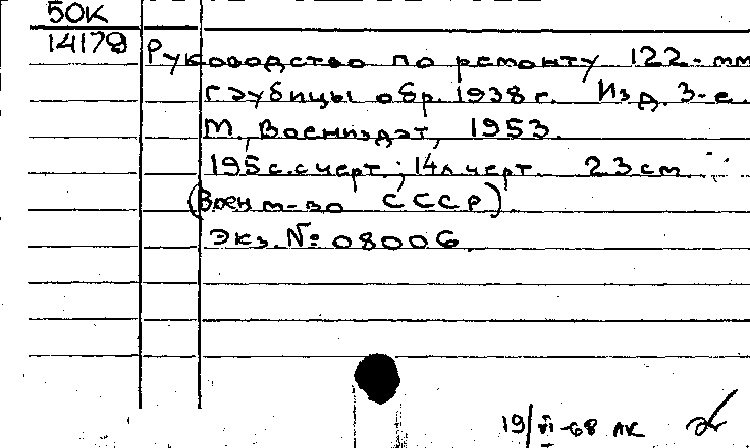 50К
14179 Руководство по ремонту 122-мм
гаубицы обр. 1938 г. Изд. 3-е.
М., Воениздат, 1953.
195 с. с черт.; 14 л. черт. 23 см.
(Воен. м-во СССР).
Экз. № 08006.
19/VI-68 ЛК